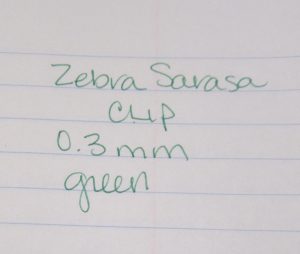 Zebra Sarasa
CLIP
0.3mm
green